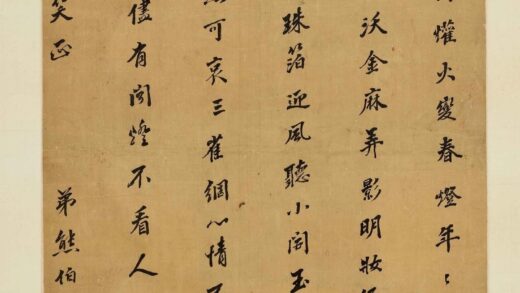 爟火變春燈年〻
沃金麻弄影明妝
珠箔迎風聽小閤玉
可哀三雀綱心情
儘有閑燈不看人
笑正
弟熊伯